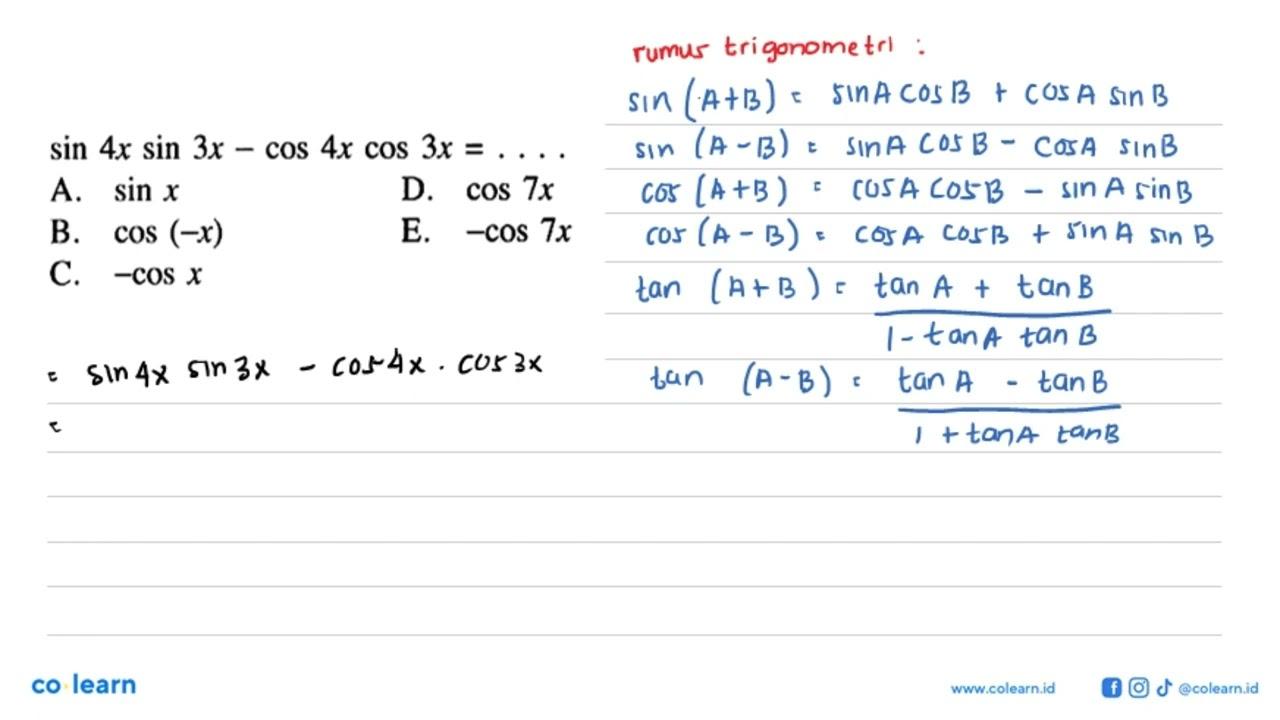 sin 4x sin 3x − cos 4x cos 3x = . . . .
A. sin x
B. cos (−x)
C. −cos x
D. cos 7x
E. −cos 7x
= sin 4x sin 3x - cos 4x . cos 3x
=
rumus trigonometri :
sin (A+B) = sin A cos B + cos A sin B
sin (A-B) = sin A cos B - cos A sin B
cos (A+B) = cos A cos B - sin A sin B
cos (A-B) = cos A cos B + sin A sin B
tan (A+B) = tan A + tan B
1 - tan A tan B
tan (A-B) = tan A - tan B
1 + tan A tan B
co learn
www.colearn.id
@colearn.id